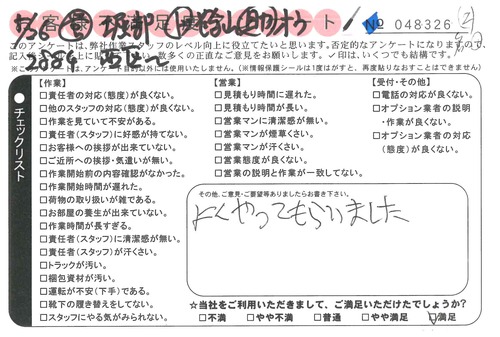 お客様満足度アンケート
№ 048326
このアンケートは、弊社作業スタッフのレベル向上に役立てたいと思います。否定的なアンケートになりますので、
多数の正直なご意見をお願いします。✓印は、いくつでも結構です。
目的以外には使いません。(※情報保護シールは1度はがすと、再度貼りなおすことはできません)
●チェックリスト
【作業】
□責任者の対応(態度)が良くない。
□他のスタッフの対応(態度)が良くない。
□作業を見ていて不安がある。
□責任者(スタッフ)に好感が持てない。
□お客様への挨拶が出来ていない。
□ご近所への挨拶・気遣いが無い。
□作業開始前の内容確認がなかった。
□作業開始時間が遅れた。
□荷物の取り扱いが雑である。
□お部屋の養生が出来ていない。
□作業時間が長すぎる。
□責任者(スタッフ)に清潔感が無い。
□責任者(スタッフ)が汗くさい。
□トラックが汚い。
□梱包資材が汚い。
□運転が不安(下手)である。
□靴下の履き替えをしてない。
□スタッフにやる気がみられない。
【営業】
□見積もり時間に遅れた。
□見積もり時間が長い。
□営業マンに清潔感が無い。
□営業マンが煙草くさい。
□営業マンが汗くさい。
□営業態度が良くない。
□営業の説明と作業が一致してない。
【受付・その他】
□電話の対応が良くない。
□オプション業者の説明
・作業が良くない。
□オプション業者の対応
(態度)が良くない。
その他、ご意見・ご要望等ありましたらお書き下さい。
よくやってもらいました
☆当社をご利用いただきまして、ご満足いただけたでしょうか?
□不満 □やや不満 □普通 □やや満足 ☑満足